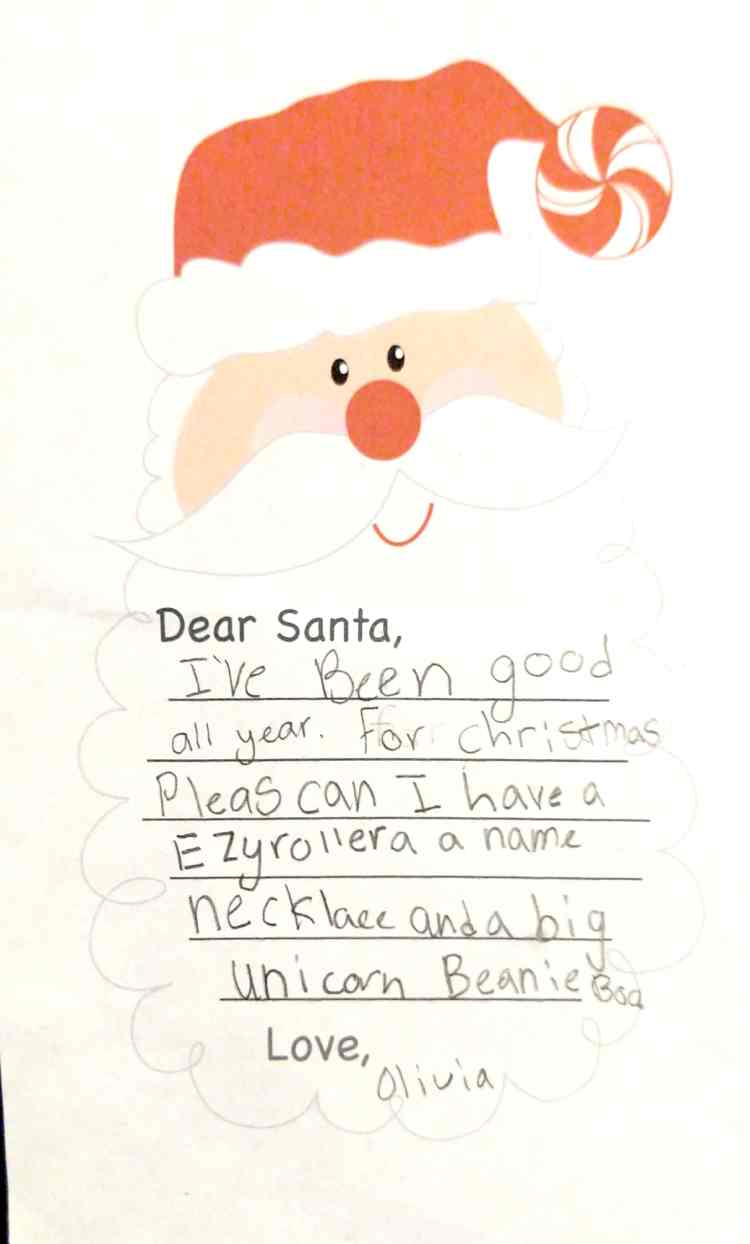 Dear Santa,
I've Been good
all year. For christmas
Pleas can I have a
Ezyrollera a name
necklace and a big
unicorn Beanie Boa
Love,
Olivia